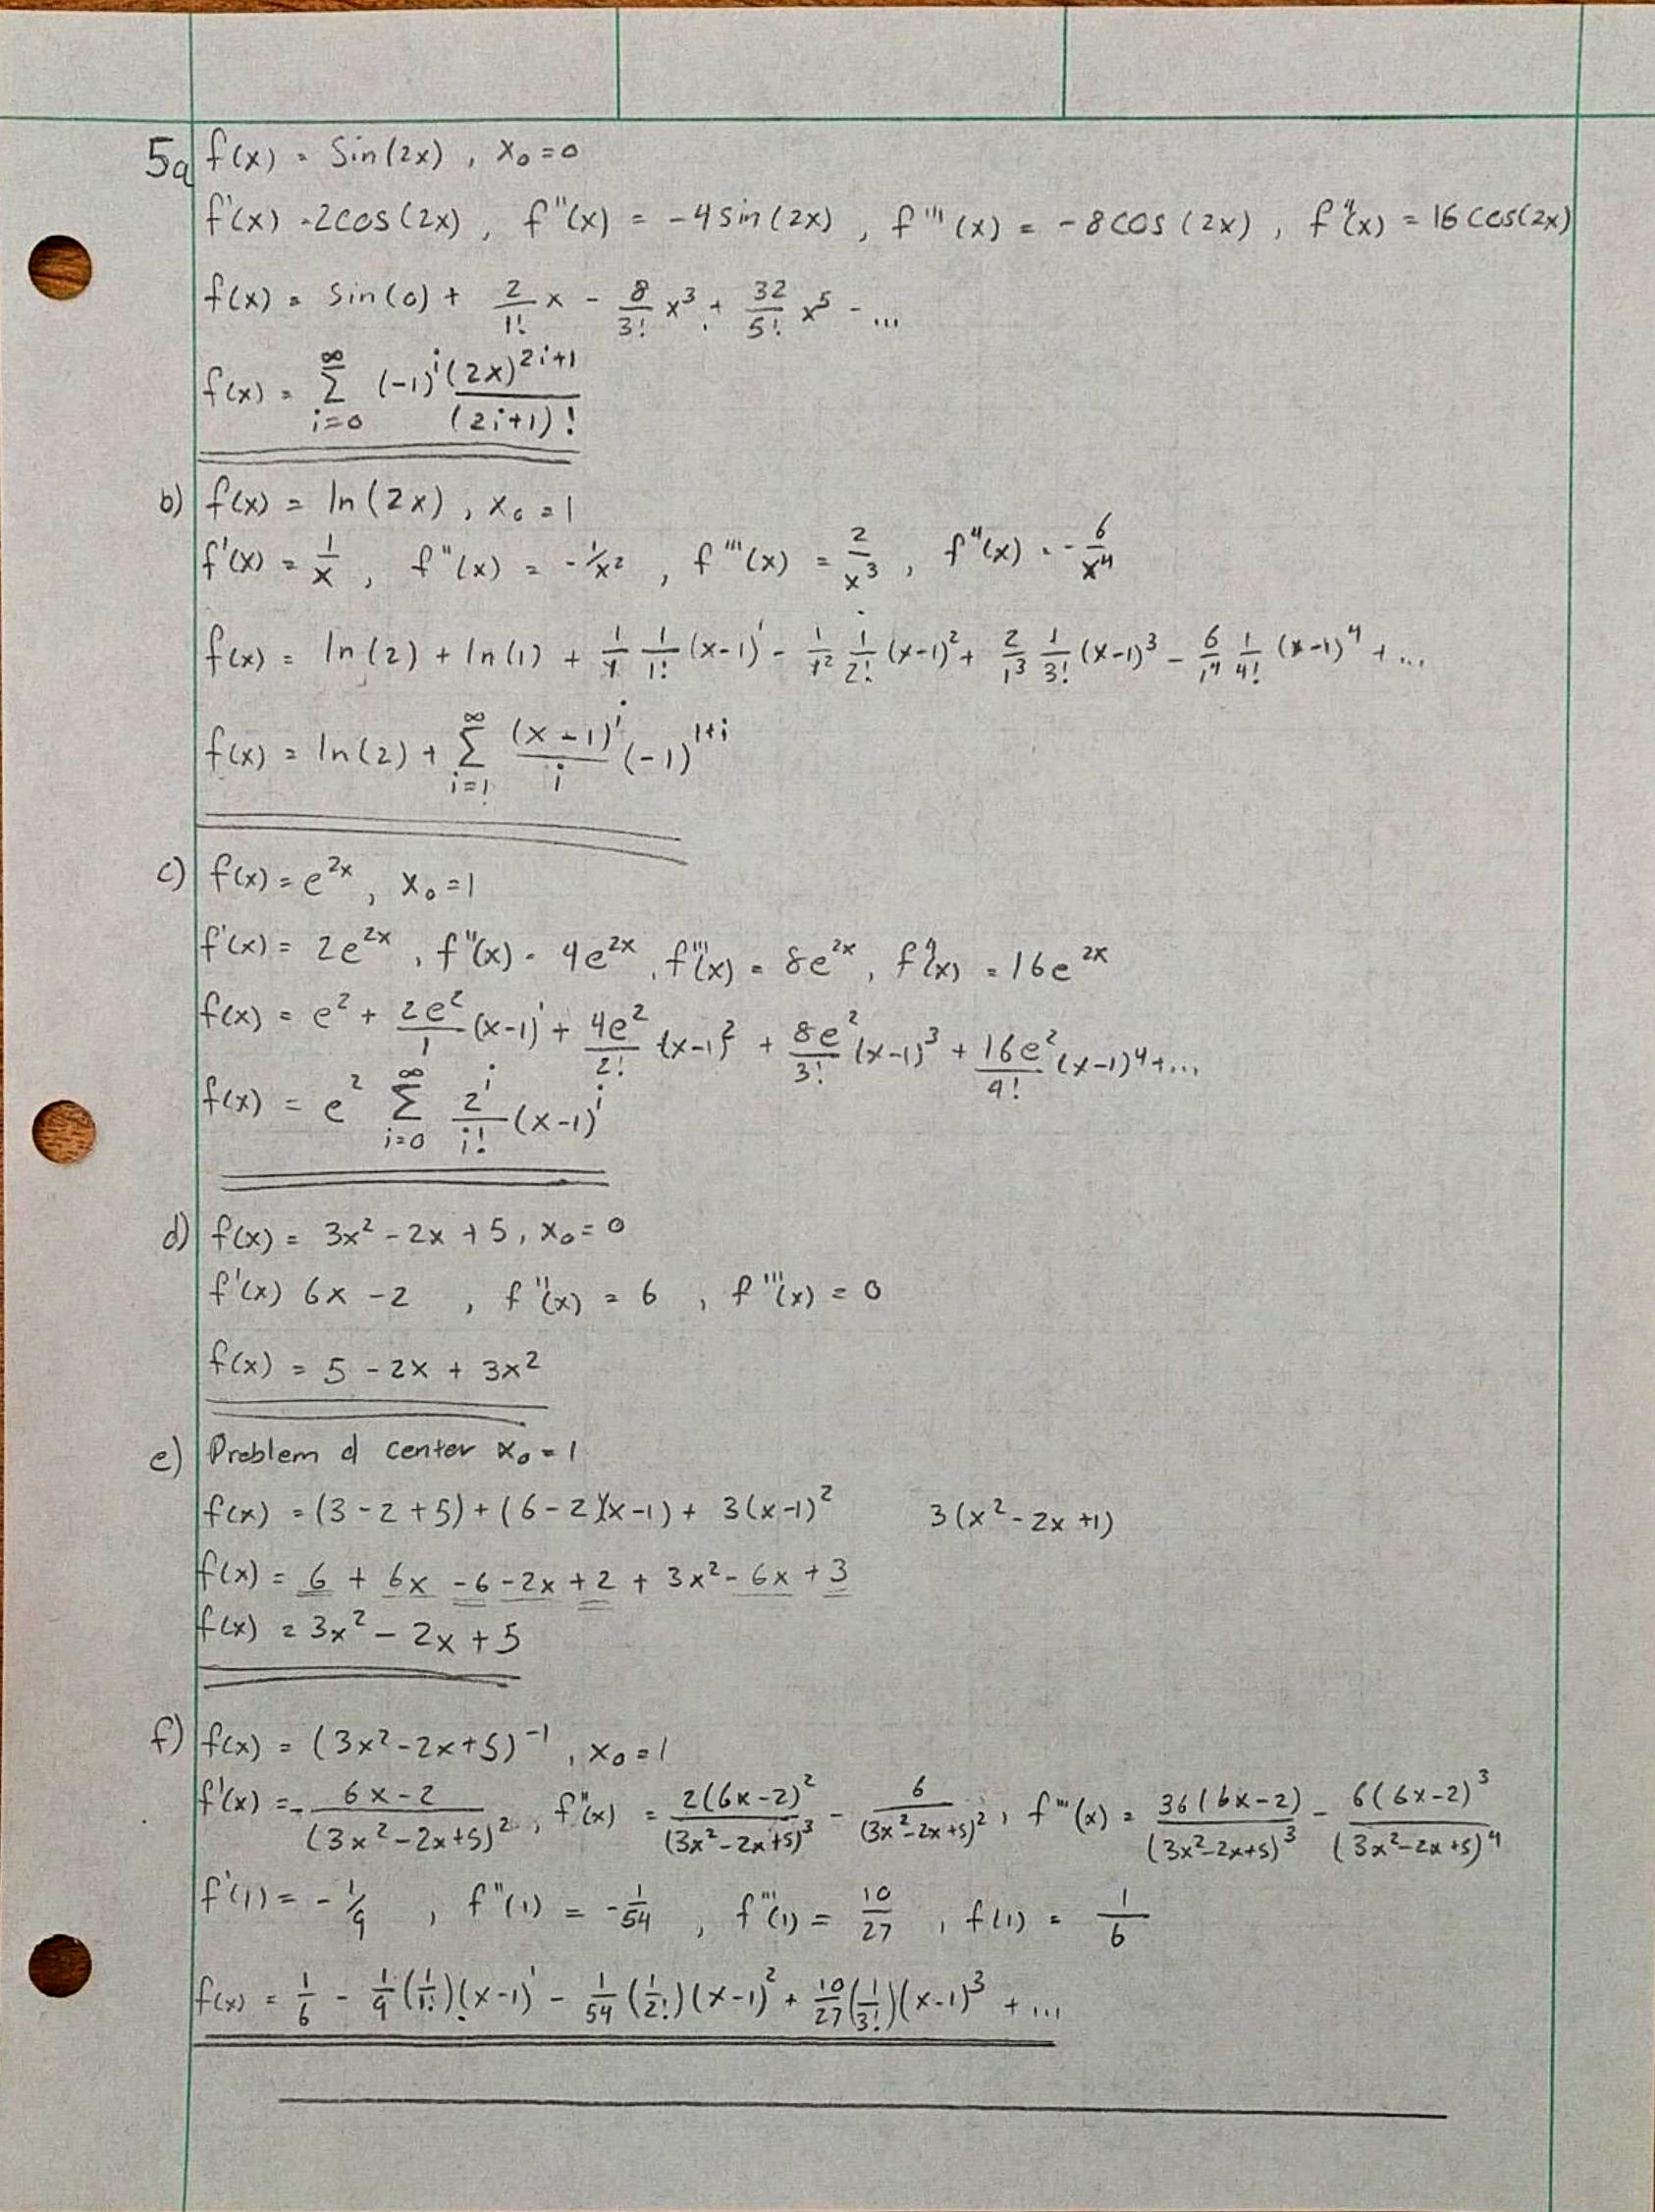 5a f(x) = Sin(2x) , x₀ = 0
f'(x) = 2cos(2x) , f''(x) = -4 sin(2x) , f'''(x) = -8 cos(2x) , f⁴(x) = 16 cos(2x)
f(x) = Sin(0) + 2/1! x - 8/3! x³ + 32/5! x⁵ - ...
f(x) = ∑_{i=0}^{∞} (-1)^i (2x)^{2i+1}/(2i+1)!
b) f(x) = ln(2x) , x₀ = 1
f'(x) = 1/x , f''(x) = -1/x² , f'''(x) = 2/x³ , f⁴(x) = -6/x⁴
f(x) = ln(2) + ln(1) + 1/1 1/1! (x-1)¹ - 1/1² 1/2! (x-1)² + 2/1³ 1/3! (x-1)³ - 6/1⁴ 1/4! (x-1)⁴ + ...
f(x) = ln(2) + ∑_{i=1}^{∞} (x-1)^i/i (-1)^{1+i}
c) f(x) = e^{2x} , x₀ = 1
f'(x) = 2e^{2x} , f''(x) = 4e^{2x} , f'''(x) = 8e^{2x} , f⁴(x) = 16e^{2x}
f(x) = e² + 2e²/1 (x-1)¹ + 4e²/2! (x-1)² + 8e²/3! (x-1)³ + 16e²/4! (x-1)⁴ + ...
f(x) = e² ∑_{i=0}^{∞} 2^i/i! (x-1)^i
d) f(x) = 3x² - 2x + 5 , x₀ = 0
f'(x) 6x - 2 , f''(x) = 6 , f'''(x) = 0
f(x) = 5 - 2x + 3x²
e) Problem d center x₀ = 1
f(x) = (3 - 2 + 5) + (6 - 2)(x-1) + 3(x-1)² 3(x² - 2x + 1)
f(x) = 6 + 6x - 6 - 2x + 2 + 3x² - 6x + 3
f(x) = 3x² - 2x + 5
f) f(x) = (3x² - 2x + 5)⁻¹ , x₀ = 1
f'(x) = - (6x - 2)/(3x² - 2x + 5)² , f''(x) = 2(6x - 2)²/(3x² - 2x + 5)³ - 6/(3x² - 2x + 5)² , f'''(x) = 36(6x - 2)/(3x² - 2x + 5)³ - 6(6x - 2)³/(3x² - 2x + 5)⁴
f'(1) = -1/9 , f''(1) = -1/54 , f'''(1) = 10/27 , f(1) = 1/6
f(x) = 1/6 - 1/9 (1/1!)(x-1)¹ - 1/54 (1/2!)(x-1)² + 10/27 (1/3!)(x-1)³ + ...